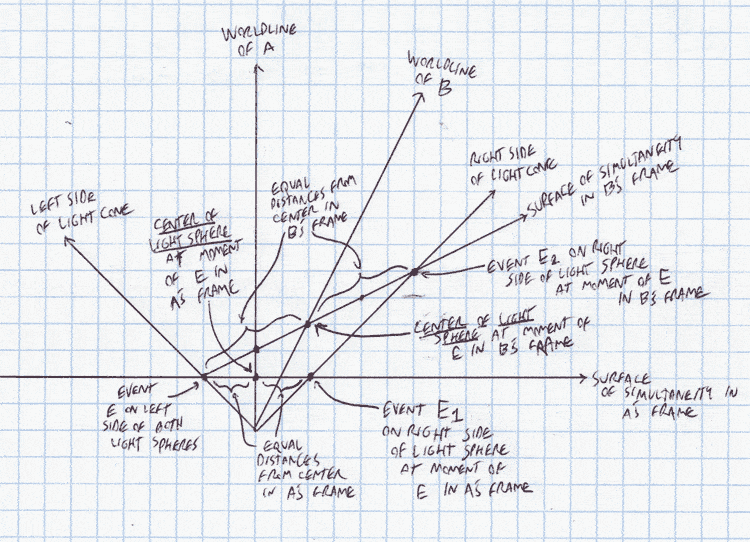 WORLDLINE
OF A
WORLDLINE
OF B
RIGHT SIDE
OF LIGHT CONE
SURFACE OF SIMULTANEITY
IN B'S FRAME
LEFT SIDE
OF LIGHT CONE
CENTER OF
LIGHT SPHERE
AT MOMENT
OF E IN
A'S FRAME
EQUAL
DISTANCES FROM
CENTER IN
B'S FRAME
EVENT E2 ON RIGHT
SIDE OF LIGHT SPHERE
AT MOMENT OF E
IN B'S FRAME
CENTER OF LIGHT
SPHERE AT MOMENT OF
E IN B'S FRAME
SURFACE
OF SIMULTANEITY IN
A'S FRAME
EVENT
E ON LEFT
SIDE OF BOTH
LIGHT SPHERES
EQUAL
DISTANCES
FROM CENTER
IN A'S FRAME
EVENT E1
ON RIGHT SIDE
OF LIGHT SPHERE
AT MOMENT OF
E IN A'S FRAME